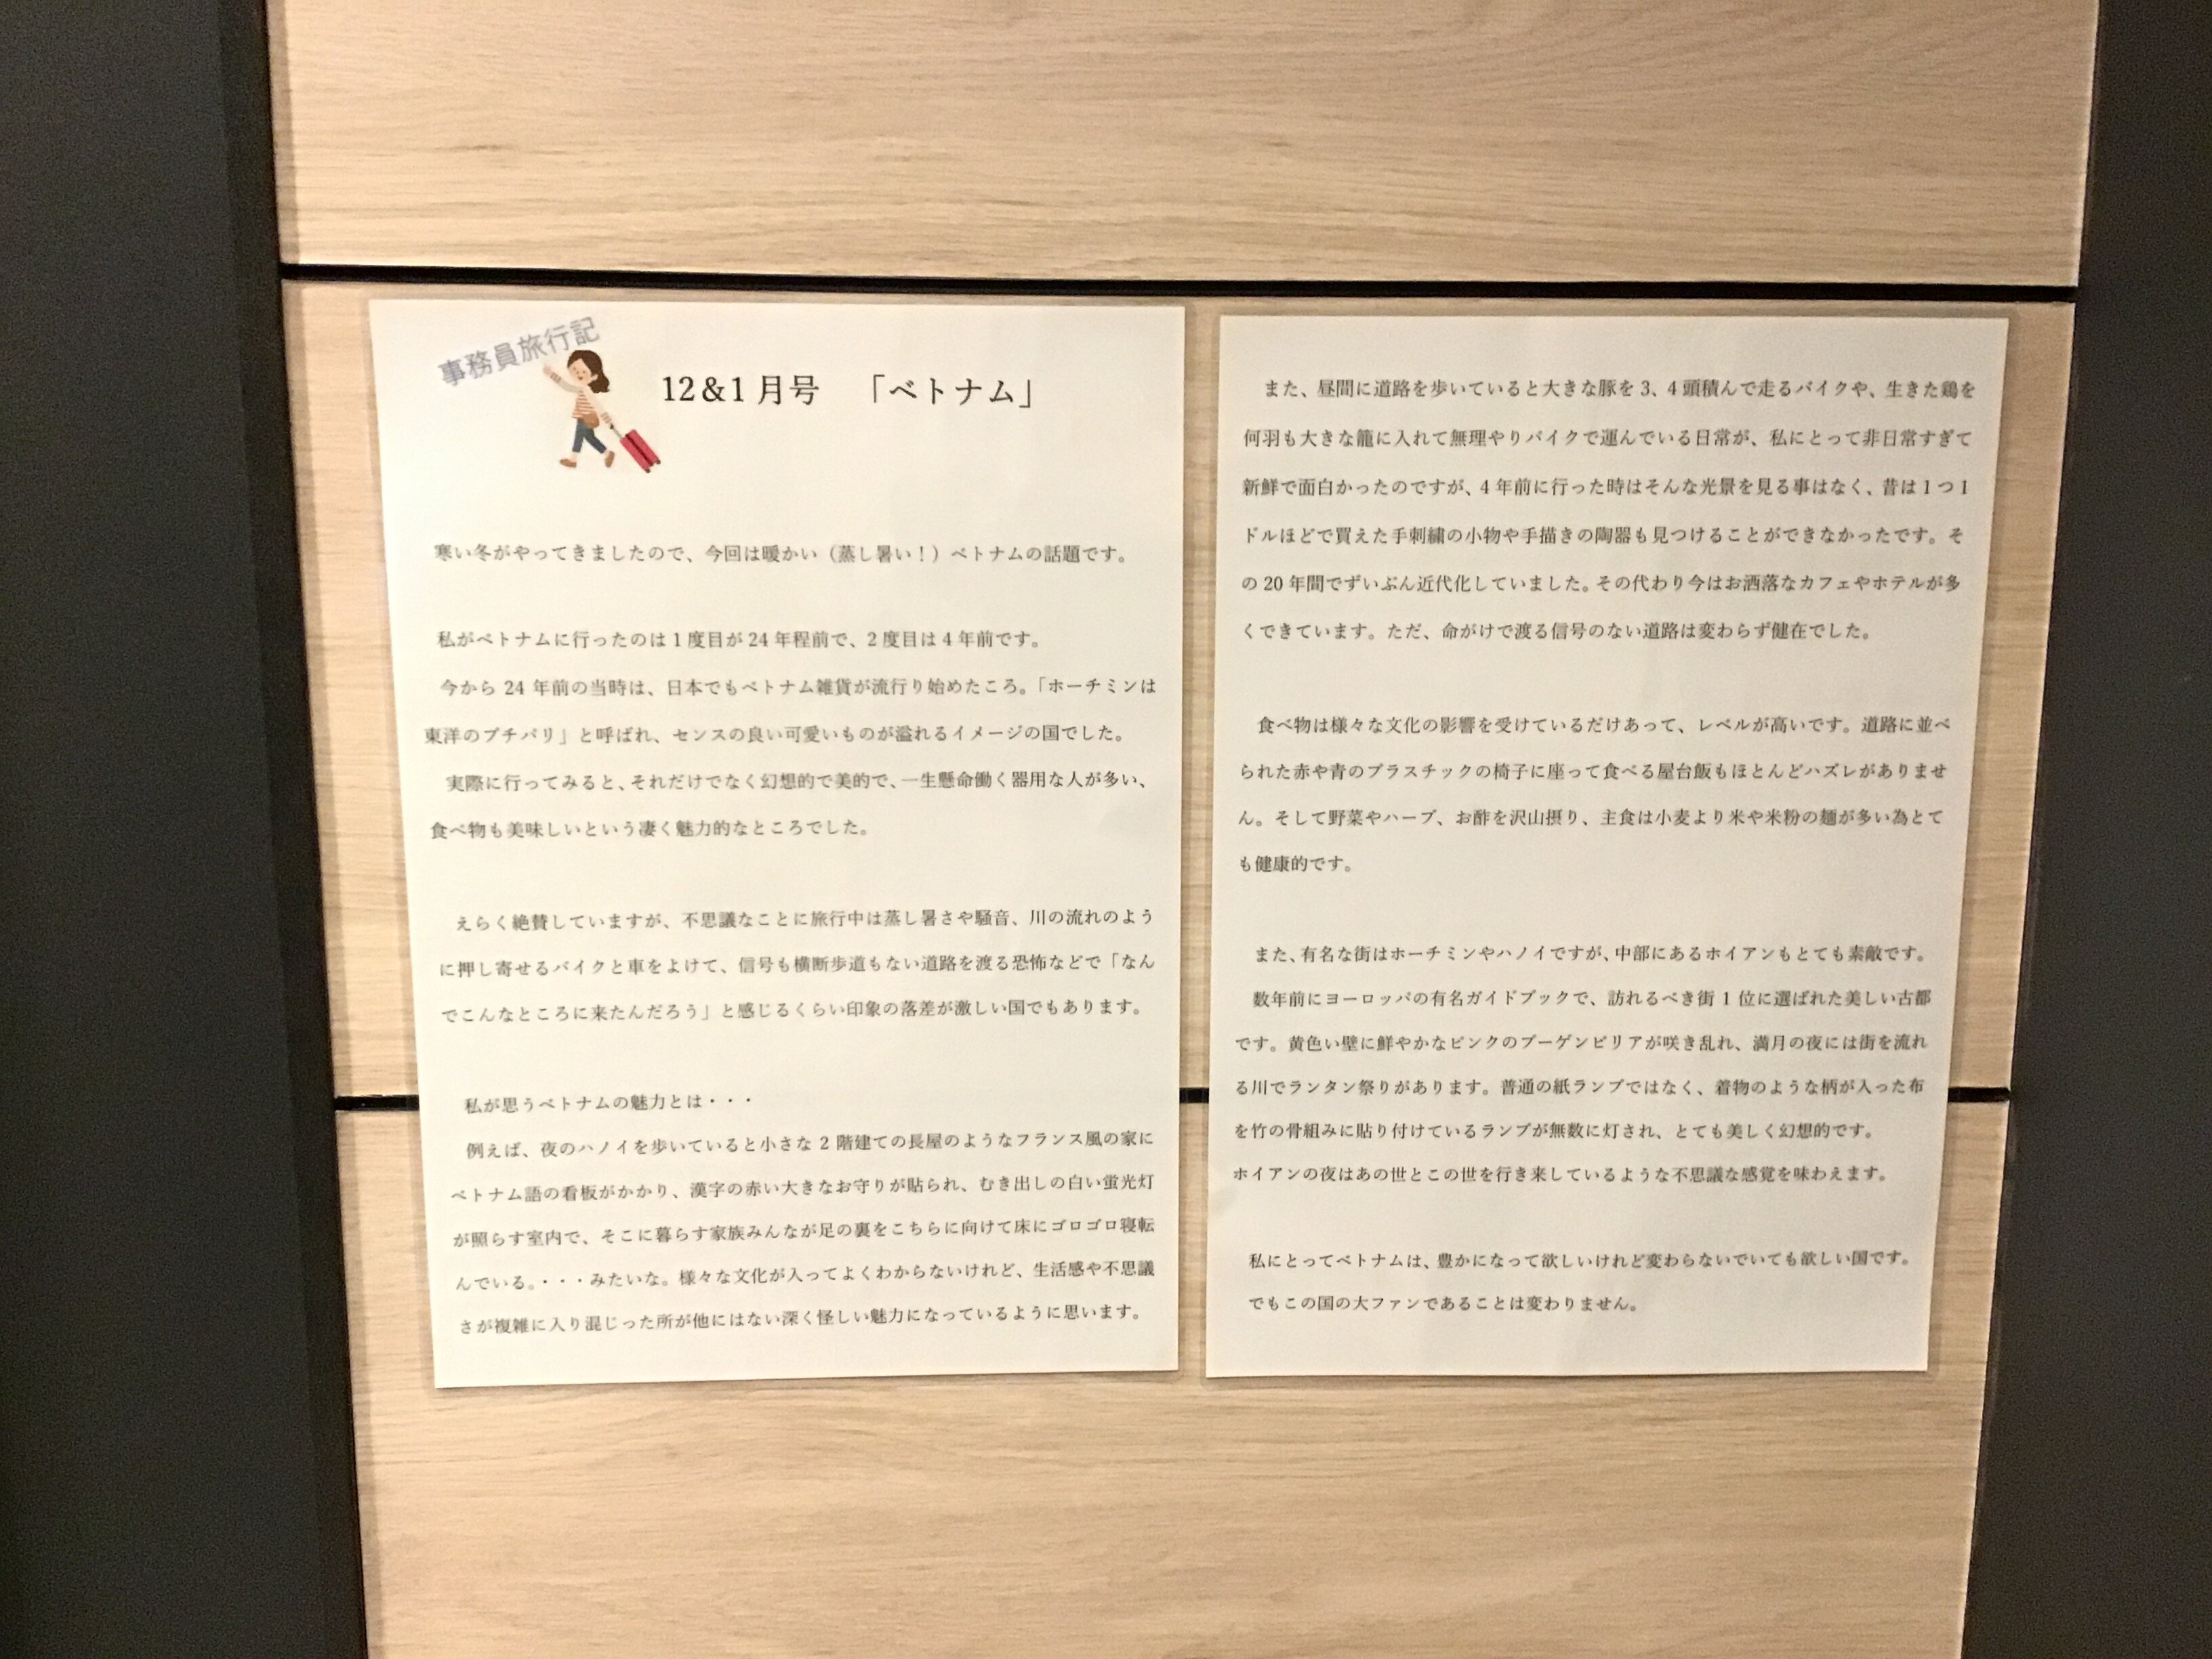 事務員旅行記
12&1月号　「ベトナム」
寒い冬がやってきましたので、今回は暖かい（蒸し暑い！）ベトナムの話題です。
私がベトナムに行ったのは1度目が24年程前で、2度目は4年前です。
今から 24 年前の当時は、日本でもベトナム雑貨が流行り始めたころ。「ホーチミンは
東洋のプチパリ」と呼ばれ、センスの良い可愛いものが溢れるイメージの国でした。
実際に行ってみると、それだけでなく幻想的で美的で、一生懸命働く器用な人が多い、
食べ物も美味しいという凄く魅力的なところでした。
えらく絶賛していますが、不思議なことに旅行中は蒸し暑さや騒音、川の流れのよう
に押し寄せるバイクと車をよけて、信号も横断歩道もない道路を渡る恐怖などで「なん
でこんなところに来たんだろう」と感じるくらい印象の落差が激しい国でもあります。
私が思うベトナムの魅力とは・・・
例えば、夜のハノイを歩いていると小さな 2 階建ての長屋のようなフランス風の家に
ベトナム語の看板がかかり、漢字の赤い大きなお守りが貼られ、むき出しの白い蛍光灯
が照らす室内で、そこに暮らす家族みんなが足の裏をこちらに向けて床にゴロゴロ寝転
んでいる。・・・みたいな。様々な文化が入ってよくわからないけれど、生活感や不思議
さが複雑に入り混じった所が他にはない深く怪しい魅力になっているように思います。
また、昼間に道路を歩いていると大きな豚を3、4頭積んで走るバイクや、生きた鶏を
何羽も大きな籠に入れて無理やりバイクで運んでいる日常が、私にとって非日常すぎて
新鮮で面白かったのですが、4年前に行った時はそんな光景を見る事はなく、昔は1つ1
ドルほどで買えた手刺繍の小物や手描きの陶器も見つけることができなかったです。そ
の 20 年間でずいぶん近代化していました。その代わり今はお洒落なカフェやホテルが多
くできています。ただ、命がけで渡る信号のない道路は変わらず健在でした。
食べ物は様々な文化の影響を受けているだけあって、レベルが高いです。道路に並べ
られた赤や青のプラスチックの椅子に座って食べる屋台飯もほとんどハズレがありませ
ん。そして野菜やハーブ、お酢を沢山摂り、主食は小麦より米や米粉の麺が多い為とて
も健康的です。
また、有名な街はホーチミンやハノイですが、中部にあるホイアンもとても素敵です。
数年前にヨーロッパの有名ガイドブックで、訪れるべき街 1 位に選ばれた美しい古都
です。黄色い壁に鮮やかなピンクのブーゲンビリアが咲き乱れ、満月の夜には街を流れ
る川でランタン祭りがあります。普通の紙ランプではなく、着物のような柄が入った布
を竹の骨組みに貼り付けているランプが無数に灯され、とても美しく幻想的です。
ホイアンの夜はあの世とこの世を行き来しているような不思議な感覚を味わえます。
私にとってベトナムは、豊かになって欲しいけれど変わらないでいても欲しい国です。
でもこの国の大ファンであることは変わりません。